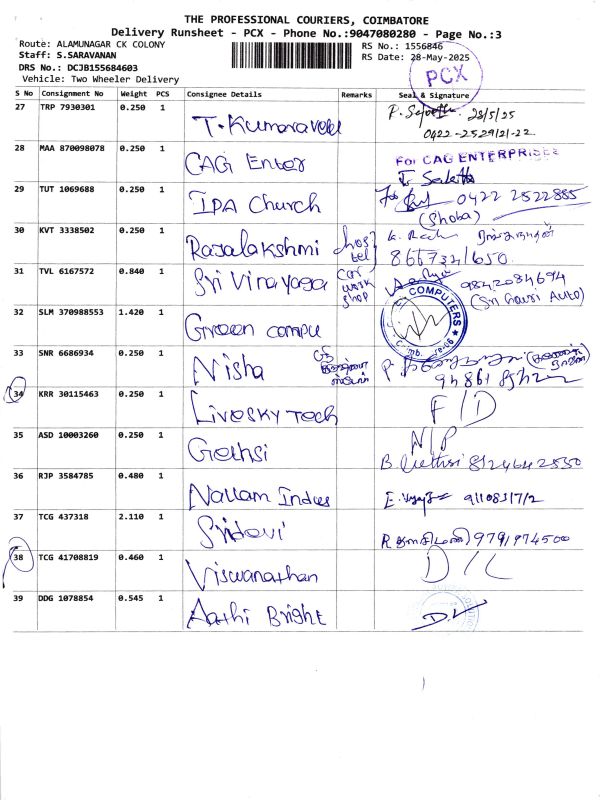 THE PROFESSIONAL COURIERS, COIMBATORE
Delivery Runsheet - PCX - Phone No.:9047080280 - Page No.:3
Route: ALAMUNAGAR CK COLONY RS No.: 1556846
Staff: S.SARAVANAN RS Date: 28-May-2025
DRS No.: DCJB155684603
Vehicle: Two Wheeler Delivery
PCX
S No Consignment No Weight PCS Consignee Details Remarks Seal & Signature
27 TRP 7930301 0.250 1 T. Kumaravel 28/5/25
0422-2529121-22
28 MAA 870098078 0.250 1 CAG Enter For CAG ENTERPRISES
29 TUT 1069688 0.250 1 IPA Church 0422 2522885
(Shoba)
30 KVT 3338502 0.250 1 Rajalakshmi hostel
8667341650
31 TVL 6167572 0.840 1 Sri Vinayaga car work shop 9842084694
(Sri Gowri Auto)
32 SLM 370988553 1.420 1 Green compu COMPUTERS
33 SNR 6686934 0.250 1 Nisha
34 KRR 30115463 0.250 1 Livesky Tech F/D
35 ASD 10003260 0.250 1 Gethsi N/P
8124642550
36 RJP 3584785 0.480 1 Nallam Indus
37 TCG 437318 2.110 1 Sridevi 9791974500
38 TCG 41708819 0.460 1 Viswanathan D/L
39 DDG 1078854 0.545 1 Aathi Bright